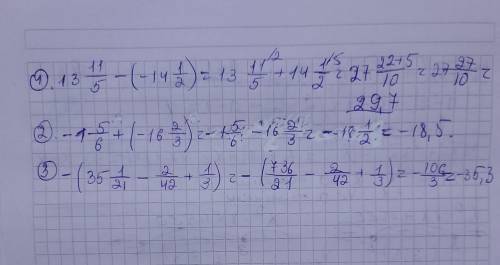 ① 13 11/5 - (-14 1/2) = 13 11/5 /2 + 14 1/2 /5 = 27 22+5/10 = 27 27/10 =
29,7
② -1 5/6 + (-16 2/3) = -1 5/6 - 16 2/3 = -18 1/2 = -18,5.
③ -(35 1/21 - 2/42 + 1/3) = -(736/21 - 2/42 + 1/3) = -106/3 = -35,3